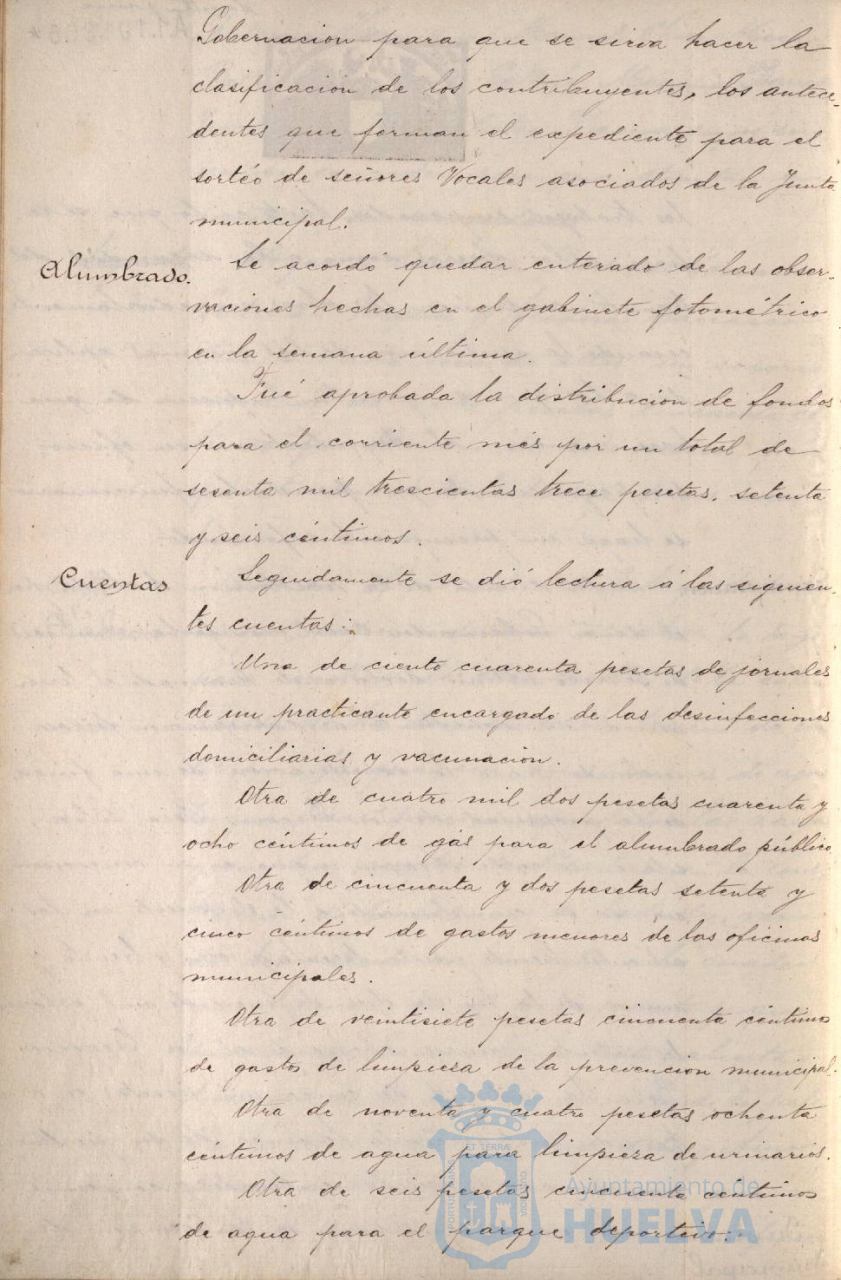 Gobernacion para que se sirva hacer la
clasificación de los contribuyentes, los antece-
dentes que forman el expediente para el
sorteo de señores Vocales asociados de la Junta
municipal.
Alumbrado.
Se acordó quedar enterado de las obser-
vaciones hechas en el gabinete fotométrico
en la semana última.
Fué aprobada la distribucion de fondos
para el corriente mes por un total de
sesenta mil trescientas trece pesetas, setenta
y seis céntimos.
Cuentas
Seguidamente se dió lectura á las siguien-
tes cuentas:
Una de ciento cuarenta pesetas de jornales
de un practicante encargado de las desinfecciones
domiciliarias y vacunacion.
Otra de cuatro mil dos pesetas cuarenta y
ocho céntimos de gas para el alumbrado público
Otra de cincuenta y dos pesetas setenta y
cinco céntimos de gastos menores de las oficinas
municipales.
Otra de veintisiete pesetas cincuenta céntimos
de gastos de limpieza de la prevencion municipal.
Otra de noventa y cuatro pesetas ochenta
céntimos de agua para limpieza de urinarios.
Otra de seis pesetas cincuenta céntimos
de agua para el parque deportivo.
Ayuntamiento de
HUELVA